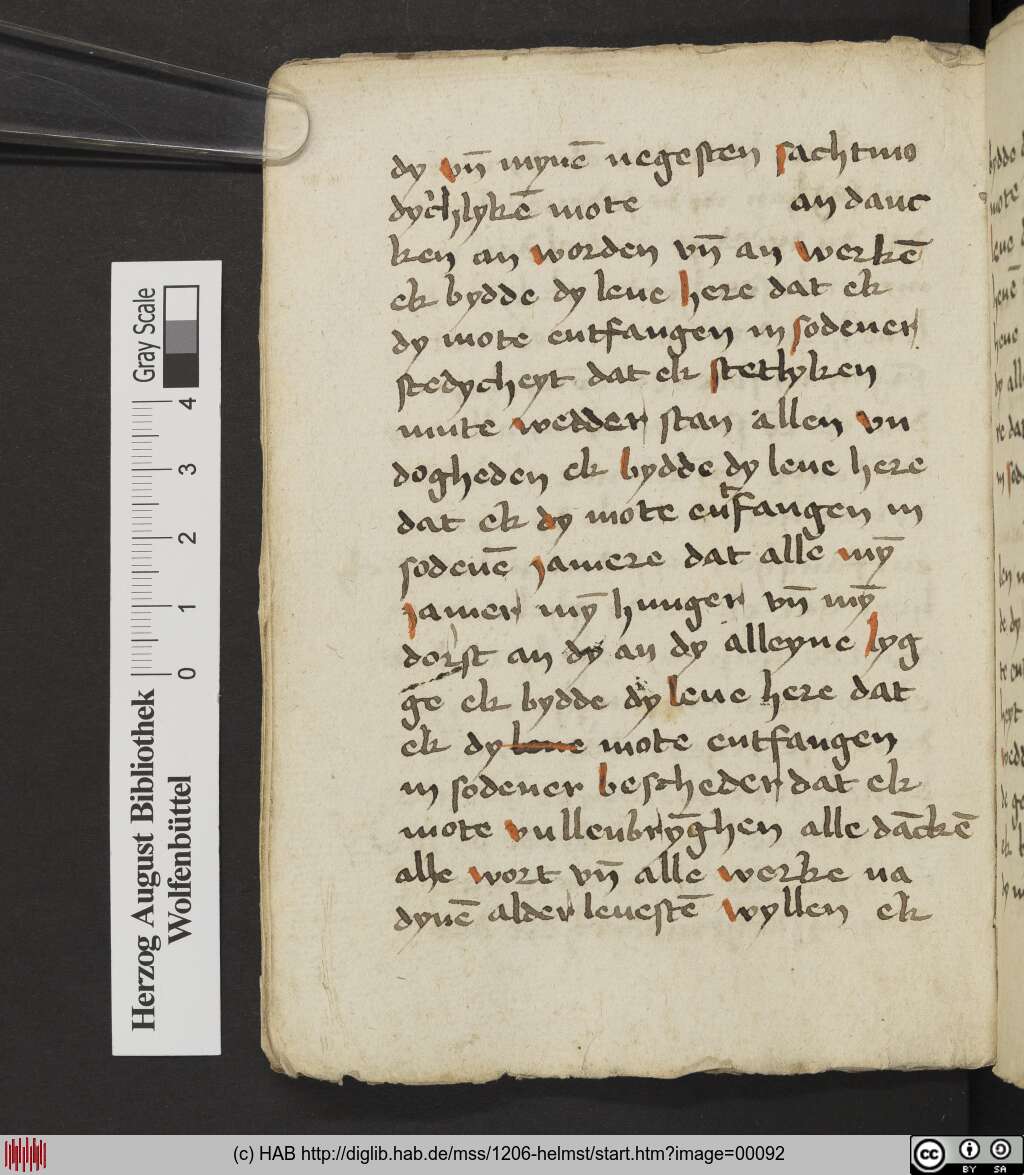 dy vn̄ mynē negesten sachtmo
dychlykē mote an danc
ken an worden vn̄ an werkē
ek bydde dy leue here dat ek
dy mote entfangen in sodener
stedycheyt dat ek stetlyken
mote wedder stan allen vn
dogheden ek bydde dy leue here
dat ek dy mote entfangen in
sodenē iamere dat alle mȳ
iamer mȳ hunger vn̄ mȳ
dorst an dy an dy alleyne lyg
ge ek bydde dy leue here dat
ek dy leue mote entfangen
in sodener bescheder dat ek
mote vullenbrȳghen alle dāckē
alle wort vn̄ alle werke na
dynē alder leuestē wyllen ek
Herzog August Bibliothek
Wolfenbüttel
Gray Scale
0 1 2 3 4
(c) HAB http://diglib.hab.de/mss/1206-helmst/start.htm?image=00092
cc BY SA